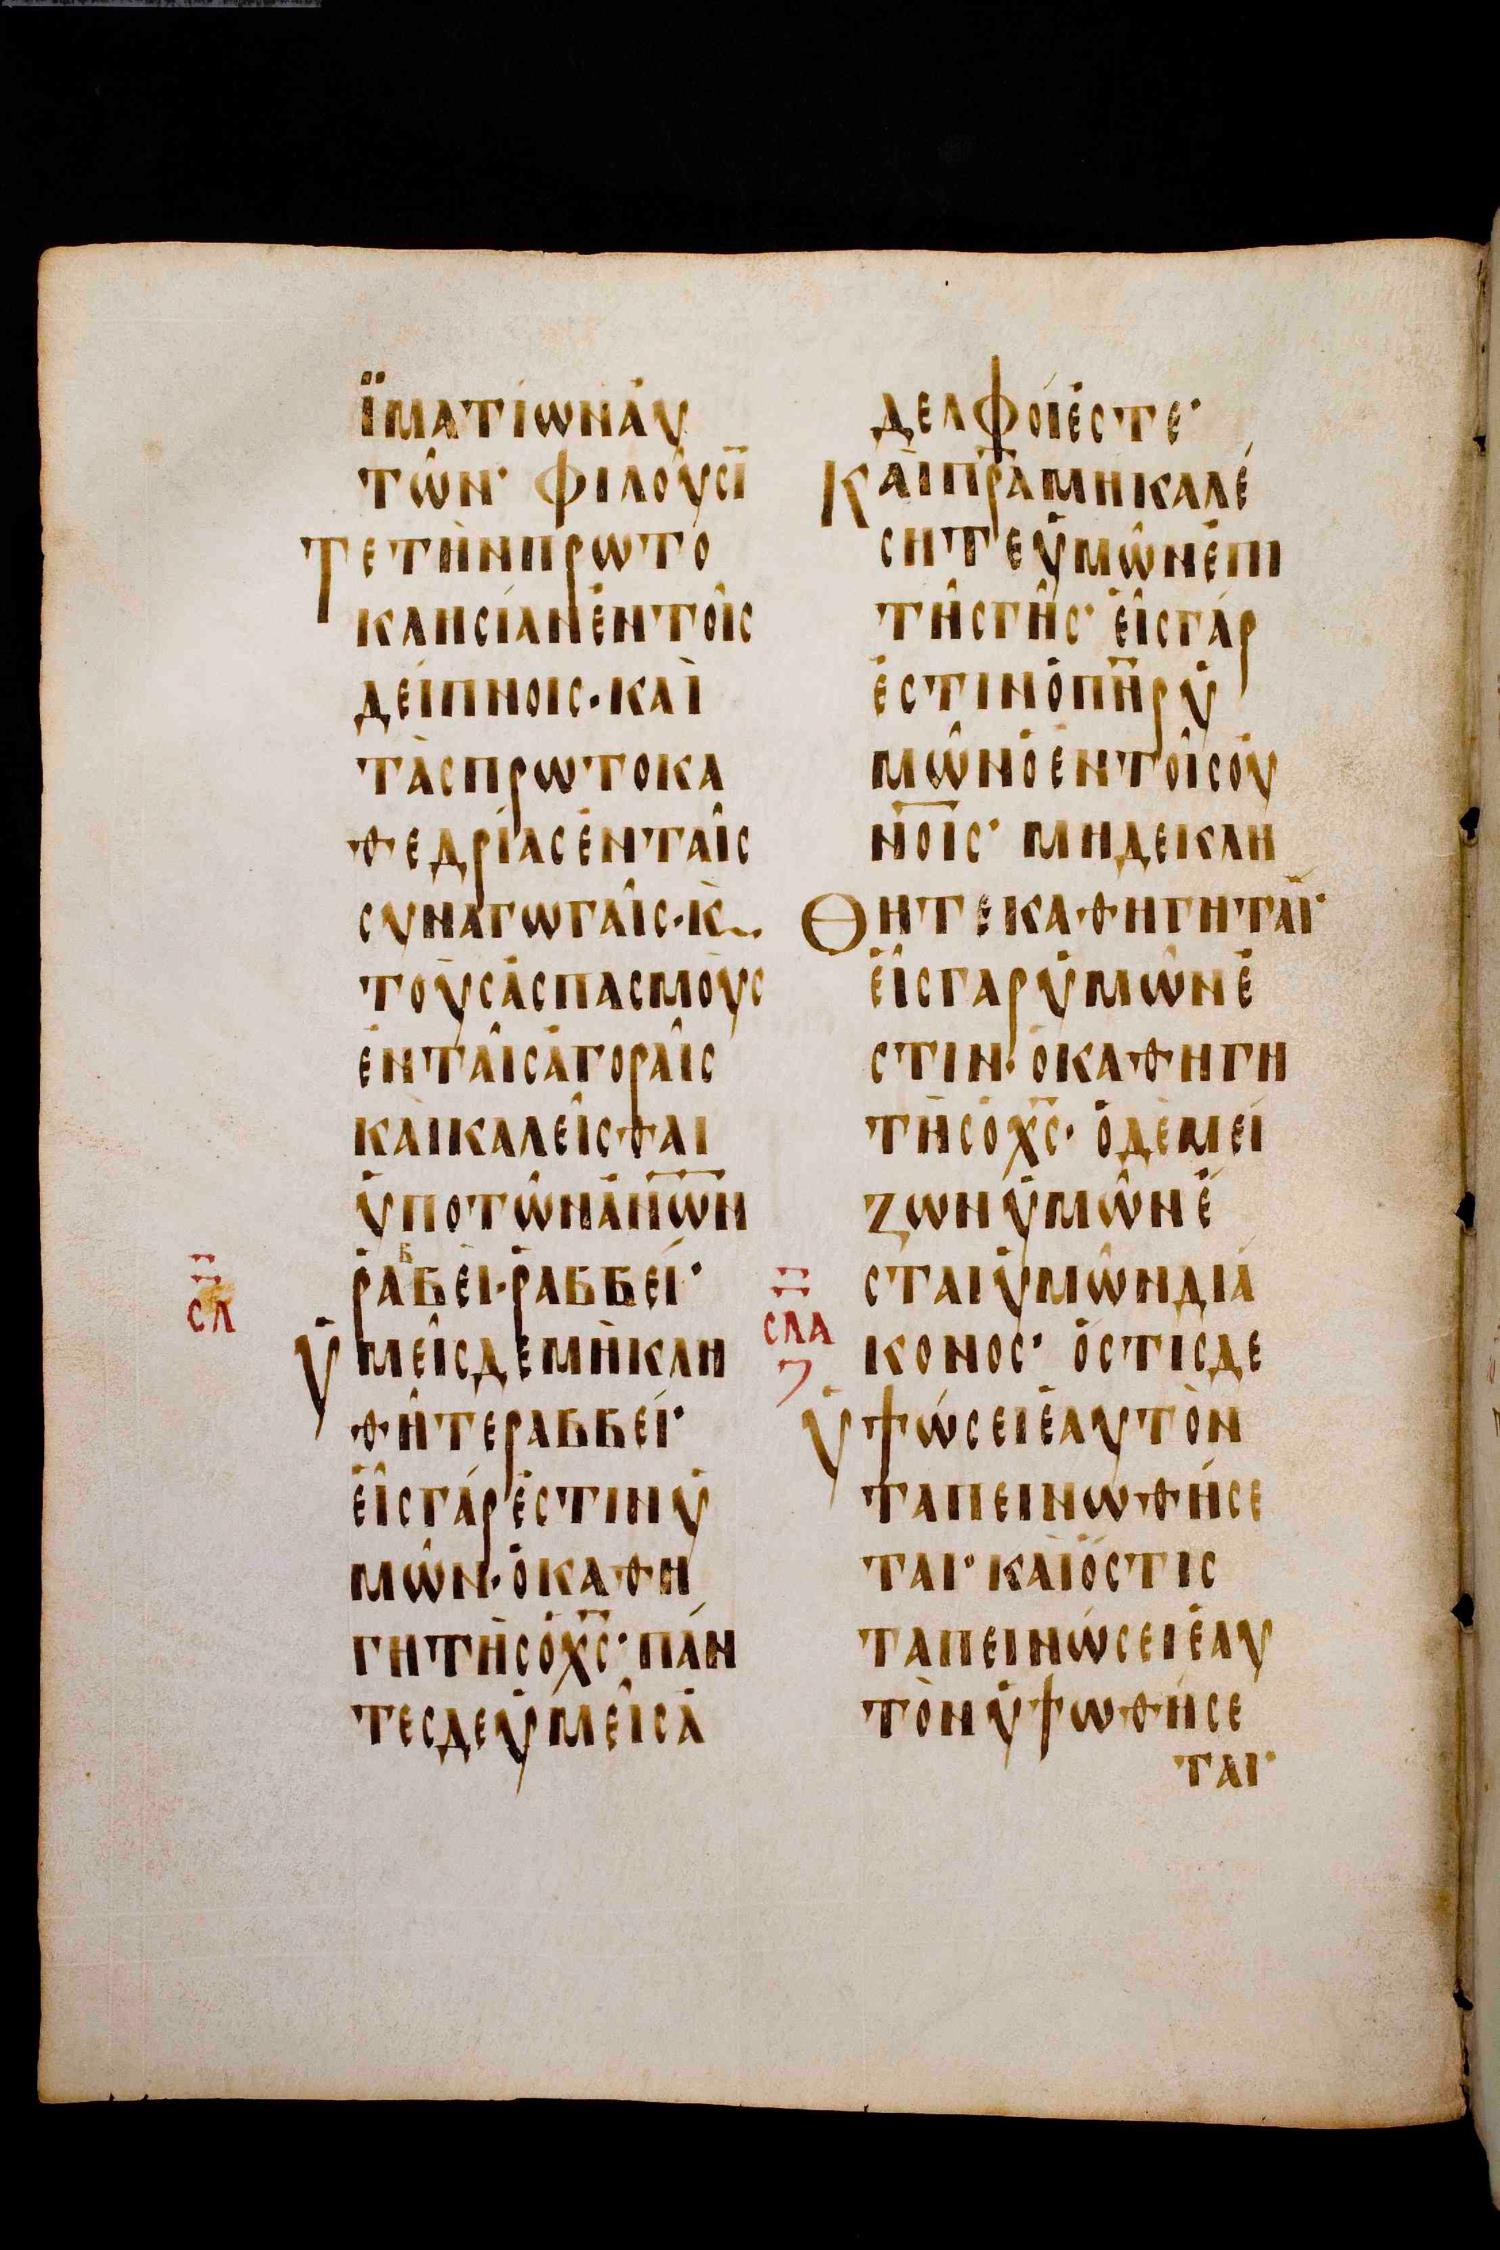 ἵματίωνἀυ
τῶν· φιλοῦσῑ
Τετὴνπρωτο
κλησίανἐντοῖς
δείπνοις·καὶ
τὰςπρωτοκα
θεδρίασἐνταῖς
συναγωγαῖς·κ̀
τοὺσἀσπασμοὺς
ἐνταῖσἀγοραῖς
κὰικαλεῖσθαι
ὑποτῶνἀν̅ω̅ν
ῥαββεὶ·ῥαββεί·
Ὑμεῖσδεμὴκλη
θῆτεραββεί·
ἐῖσγάρἐστινυ
μῶν·ὁκαθη
γητὴσὁχ̅ς̅·πάν
τεσδεὑμεῖσἀ
σλ
δελφοίἐστε·
Κὰιπ̅ρ̅αμηκαλέ
σητεὑμῶνἐπι
τῆσγῆς· ἐῖσγάρ
ἐστινὁπ̅η̅ρὑ
μῶνὁἐντοῖσὀυ
ν̅οῖς· μηδεκλη
Θητεκαθηγηταί·
ἐῖσγαρὑμῶνἐ
στιν·ὁκαθηγη
τὴσὁχ̅ς̅· ὁδὲμεί
ζωνὑμῶνἐ
σταιὑμῶνδιά
κονος· ὁστισδε
Ὑψώσειἑαυτὸν
ταπεινωθήσε
ται· κὰιὅστις
ταπεινώσειἑαυ
τὸνὑψωθήσε
ται·
σλα